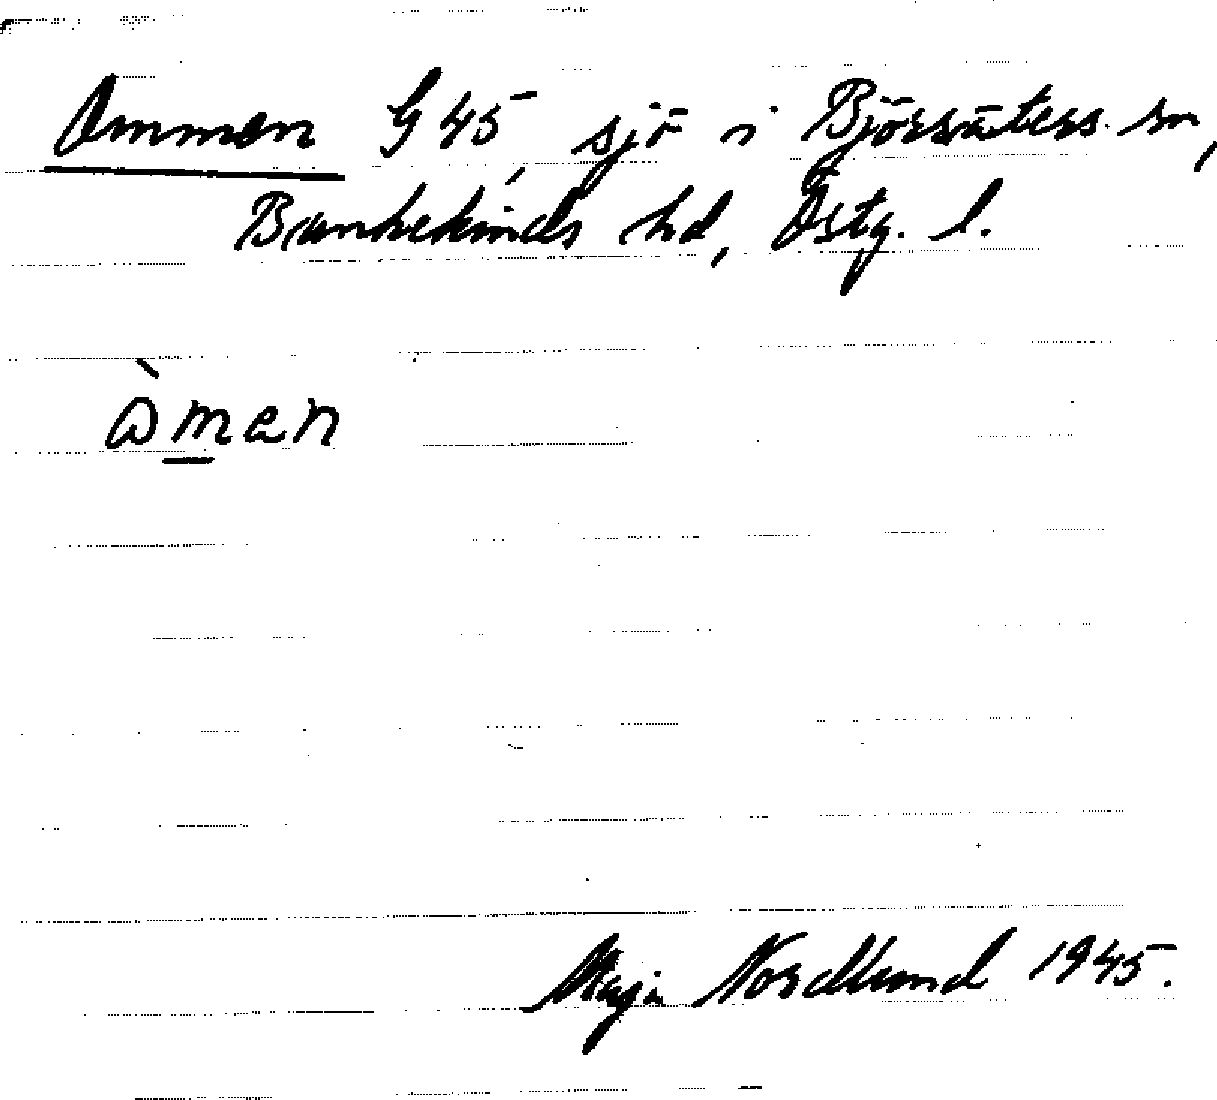 Ommen G 45 sjö i Björsäters sn,
Bankekinds hd, Östg. l.
òmen
Maja Nordlund 1945.